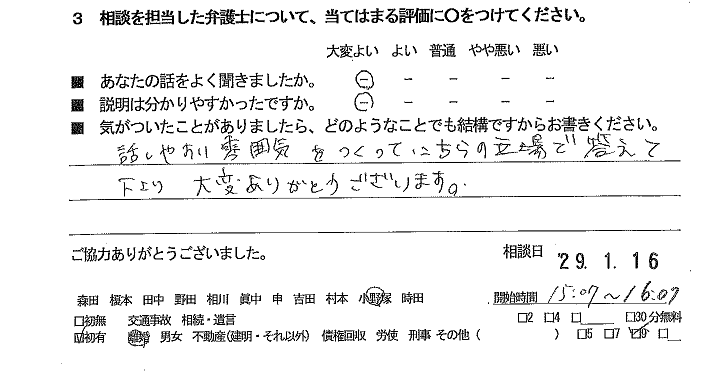 3 相談を担当した弁護士について、当てはまる評価に〇をつけてください。
大変よい よい 普通 やや悪い 悪い
あなたの話をよく聞きましたか。 － － － － －
説明は分かりやすかったですか。 － － － － －
気がついたことがありましたら、どのようなことでも結構ですからお書きください。
話しやすい雰囲気をつくっていこちらの立場で答えて
下より 大変ありがとうございます。
ご協力ありがとうございました。
相談日 '29. 1. 16
森田 榎本 田中 野田 相川 眞中 申 吉田 村本 小野塚 時田
開始時間 15:07～16:07
□初無 交通事故 相続・遺言 □2 □4 □ □30分無料
☑初有 離婚 男女 不動産(建明・それ以外) 債権回収 労使 刑事 その他 ( ) □5 □7 ☑9 □